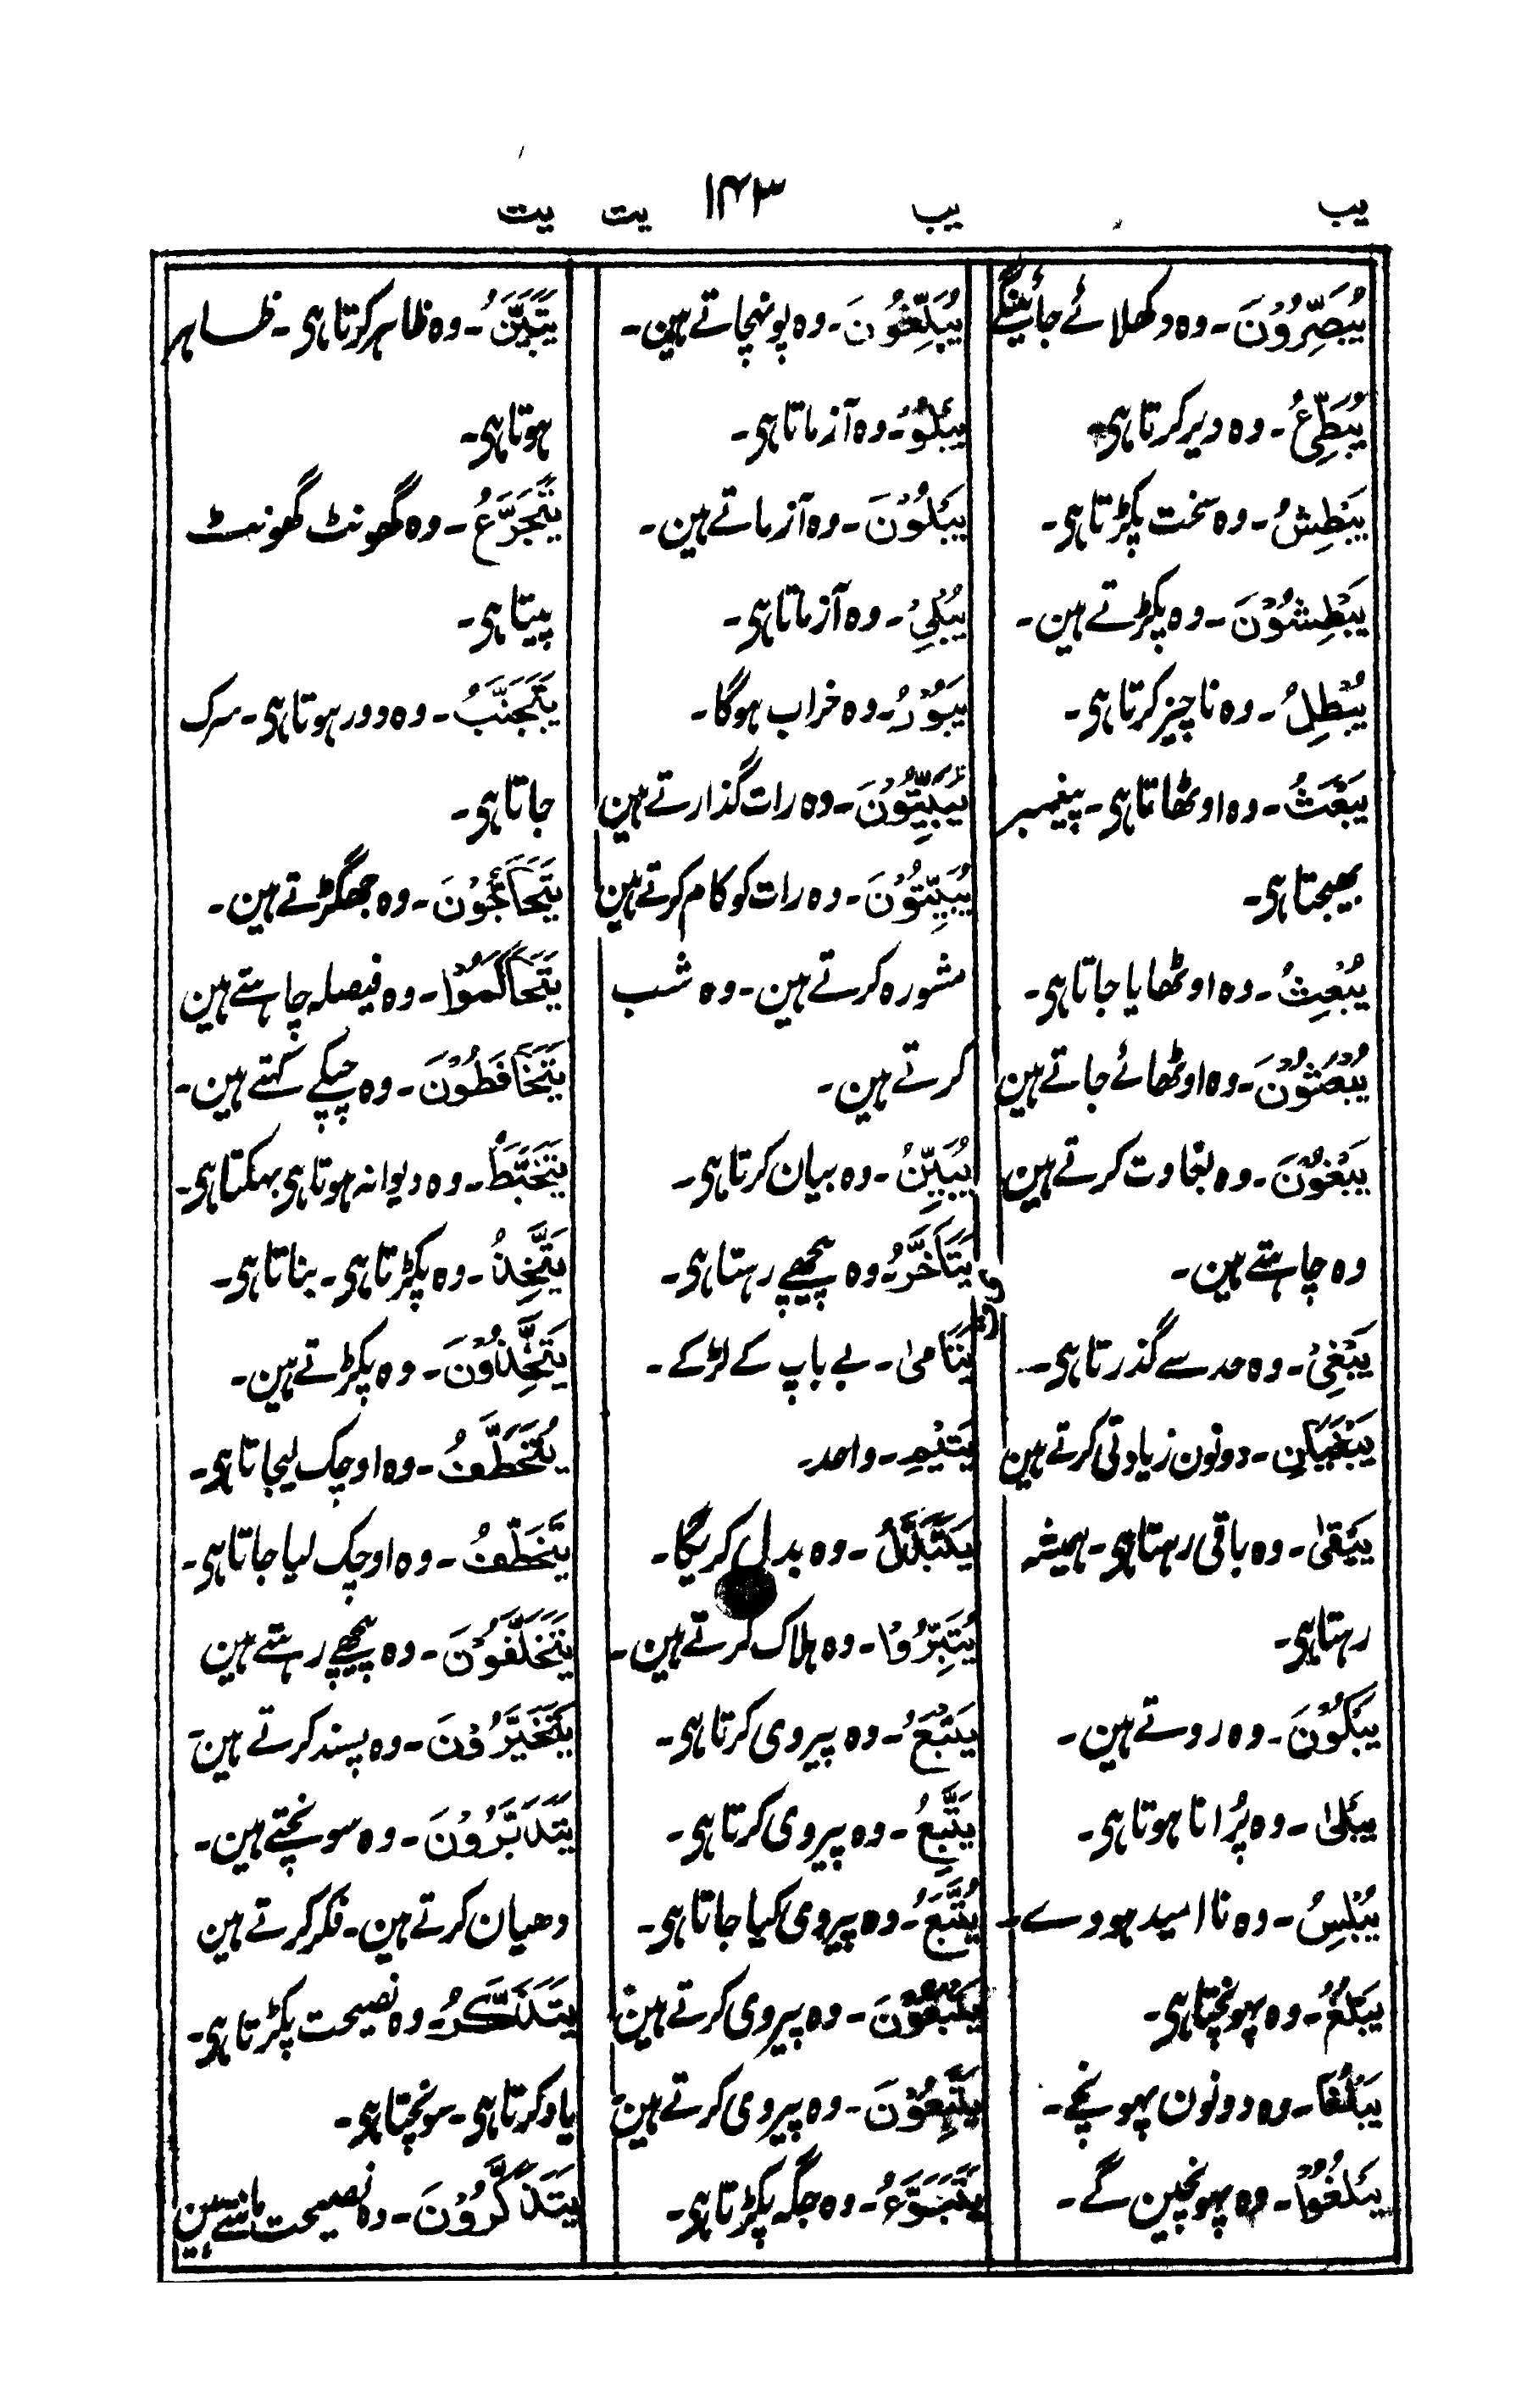 یب یب ۱۴۳ یت یت
یُبَصَّرُوْنَ۔ وہ دکھلائے جائینگے
یُبَطِّئُ۔ وہ دیر کرتا ہی۔
یَبْطِشُ۔ وہ سخت پکڑتا ہی۔
یَبْطِشُوْنَ۔ وہ پکڑتے ہین۔
یُبْطِلُ۔ وہ ناچیز کرتا ہی۔
یَبْعَثُ۔ وہ اوٹھاتا ہی۔ پیغمبر
بھیجتا ہی۔
یُبْعَثُ۔ وہ اوٹھایا جاتا ہی۔
یُبْعَثُوْنَ۔ وہ اوٹھائے جاتے ہین
یَبْغُوْنَ۔ وہ بغاوت کرتے ہین
وہ چاہتے ہین۔
یَبْغِیْ۔ وہ حد سے گذرتا ہی۔
یَبْغِیَانِ۔ دونون زیادتی کرتے ہین
یَبْقٰی۔ وہ باقی رہتا ہی۔ ہمیشہ
رہتا ہی۔
یَبْکُوْنَ۔ وہ روتے ہین۔
یَبْلٰی۔ وہ پُرانا ہوتا ہی۔
یُبْلِسُ۔ وہ نا امید ہووے۔
یَبْلُغُ۔ وہ پہونچتا ہی۔
یَبْلُغَا۔ وہ دونون پہونچے۔
یَبْلُغُوْا۔ وہ پہونچین گے۔
یُبَلِّغُوْنَ۔ وہ پونہچاتے ہین۔
یَبْلُوْ۔ وہ آزماتا ہی۔
یَبْلُوْنَ۔ وہ آزماتے ہین۔
یُبْلِیْ۔ وہ آزماتا ہی۔
یَبُوْرُ۔ وہ خراب ہوگا۔
یَبِیْتُوْنَ۔ وہ رات گذارتے ہین
یُبَیِّتُوْنَ۔ وہ رات کو کام کرتے ہین
مشورہ کرتے ہین۔ وہ شب
کرتے ہین۔
یُبَیِّنُ۔ وہ بیان کرتا ہی۔
یَتَاَخَّرُ۔ وہ پیچھے رہتا ہی۔
یَتَامیٰ۔ بے باپ کے لڑکے۔
یَتِیْم۔ واحد۔
یَتَبَدَّلُ۔ وہ بدل کریگا۔
یُتَبِّرُوْا۔ وہ ہلاک کرتے ہین۔
یَتْبَعُ۔ وہ پیروی کرتا ہی۔
یَتَّبِعُ۔ وہ پیروی کرتا ہی۔
یُتَّبَعُ۔ وہ پیروی کیا جاتا ہی۔
یَتْبَعُوْنَ۔ وہ پیروی کرتے ہین
یَتَّبِعُوْنَ۔ وہ پیروی کرتے ہین
یَتَبَوَّءُ۔ وہ جگہ پکڑتا ہی۔
یَتَبَیَّنُ۔ وہ ظاہر کرتا ہی۔ ظاہر
ہوتا ہی۔
یَتَجَرَّعُ۔ وہ گھونٹ گھونٹ
پیتا ہی۔
یَتَجَنَّبُ۔ وہ دور ہوتا ہی۔ سرک
جاتا ہی۔
یَتَحَآجُّوْنَ۔ وہ جھگڑتے ہین۔
یَتَحَاکَمُوْا۔ وہ فیصلہ چاہتے ہین
یَتَخَافَطُوْنَ۔ وہ چپکے کہتے ہین۔
یَتَخَبَّطُ۔ وہ دیوانہ ہوتا ہی بہکتا ہی۔
یَتَّخِذُ۔ وہ پکڑتا ہی۔ بناتا ہی۔
یَتَّخِذُوْنَ۔ وہ پکڑتے ہین۔
یُتَخَطَّفُ۔ وہ اوچک لیجاتا ہی۔
یَتَخَطَّفُ۔ وہ اوچک لیا جاتا ہی۔
یَتَخَلَّفُوْنَ۔ وہ پیچھے رہتے ہین
یَتَخَیَّرُوْنَ۔ وہ پسند کرتے ہین
یَتَدَبَّرُوْنَ۔ وہ سونچتے ہین۔
دھیان کرتے ہین۔ فکر کرتے ہین
یَتَذَکَّرُ۔ وہ نصیحت پکڑتا ہی۔
یاد کرتا ہی۔ سونچتا ہی۔
یَتَذَکَّرُوْنَ۔ وہ نصیحت مانتے ہین